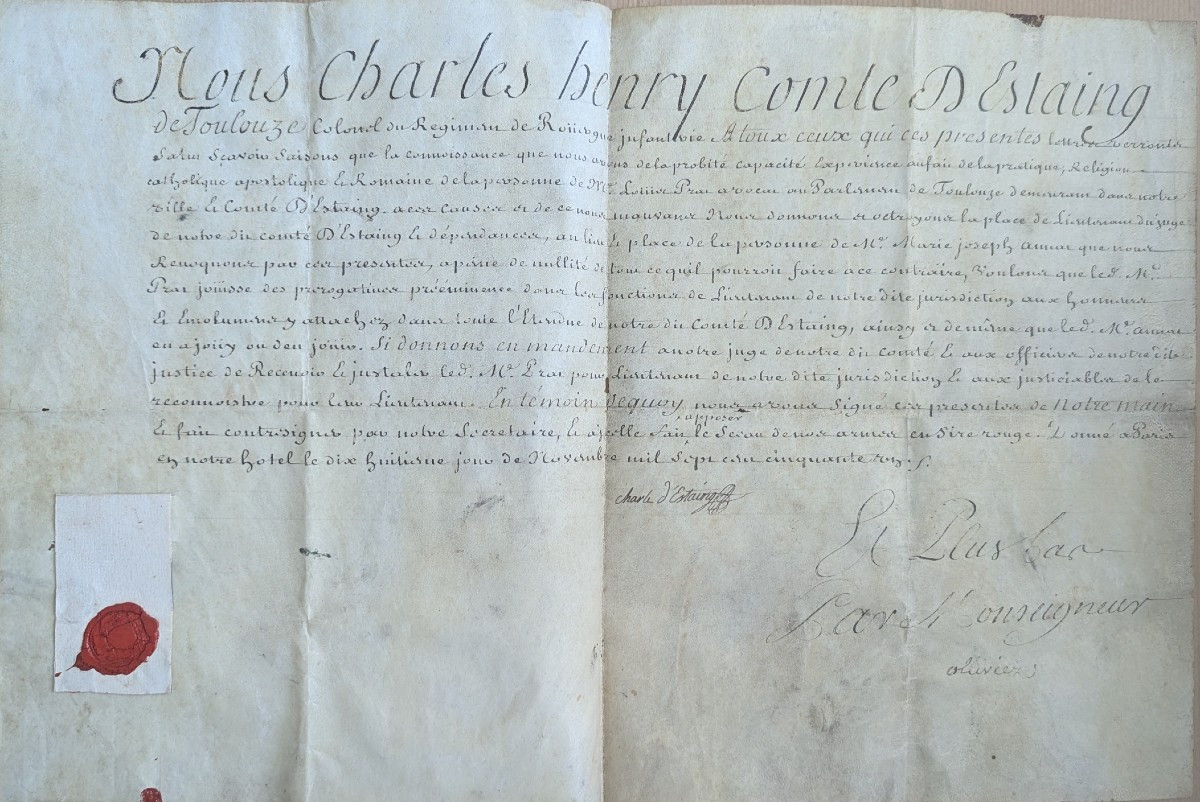 Nous Charles henry Comte D'Estaing
de Toulouze Colonel du Regiman de Roüergue infanterie A toux ceux qui ces presentes
Salut Scavoir faisons que la connoissance que nous avons de la probité capacité Experiance au fait de la pratique, Religion
catholique apostolique & Romaine de la personne de Mr. Prat avocat au Parleman de Toulouze demeurant dans notre
ville & Comté D'Estaing. a ces causes et de ce nous mouvans Nous donnons et octroyons la place de Lieutenant du juge
de notre dit comté D'Estaing & dépendances, au lieu & place de la personne de Mr. Marie joseph annat que nous
Revoquons par ces presentes, a peine de nullité de tout ce quil pourroit faire a ce contraire, Voulons que led. Mr.
Prat joüisse des prerogatives prééminence dans les fonctions de Lieutenant de notre dite jurisdiction aux honneurs
& Emolumens y attachez dans toute l'Etendue de notre dit Comté D'Estaing, ainsy et de même que led. Mr. annat
en a joüy ou deu joüir. Si donnons en mandement a notre juge de notre dit comté & aux officiers de notre dite
justice de Recevoir & installer led. Mr. Prat pour Lieutenant de notre dite jurisdiction & aux justiciables de le
reconnoistre pour leur Lieutenant. En témoin dequoy nous avons signé ces presentes de Notre main
& fait contresigner par notre Secretaire, & a icelle fait apposer le Sceau de nos armes en Sire rouge. Donné a Paris
en notre hotel le dix huitiême jour de Novembre mil sept cen cinquante
charle d'Estaing
Et Plus bas
Par Monseigneur
ollivier